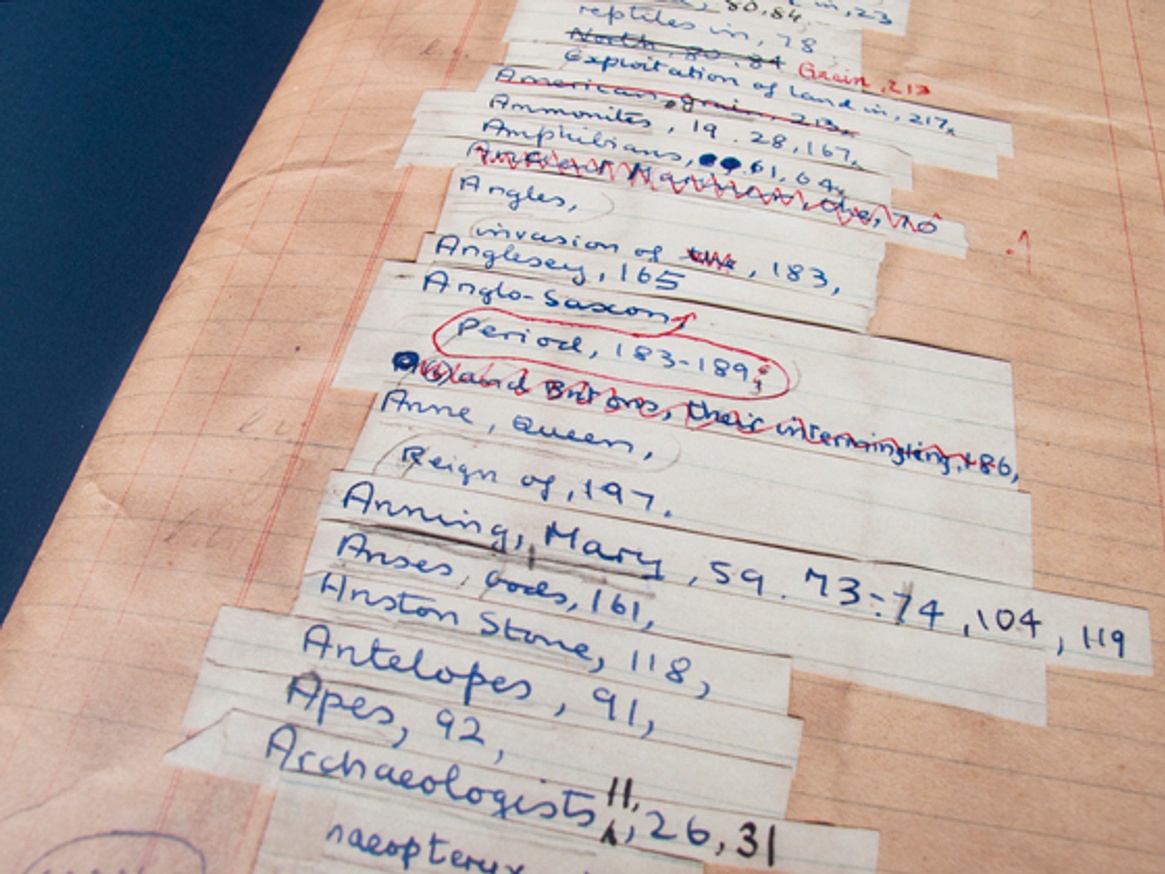 , 80, 84, in, 23
reptiles in, 78
North, 80, 84 Grain, 213
Exploitation of land in, 217,
American, grain, 213,
Ammonites, 19. 28, 167,
Amphibians, 61, 64,
the, 70
Angles,
invasion of the, 183,
Anglesey, 165
Anglo-Saxon,
Period, 183-189;
and Britons, their intermingling, 186,
Anne, Queen,
Reign of, 197.
Anning, Mary, 59. 73-74, 104, 119
Anses, gods, 161,
Anston Stone, 118,
Antelopes, 91,
Apes, 92,
Archaeologists, 11, 26, 31
naeopteryx